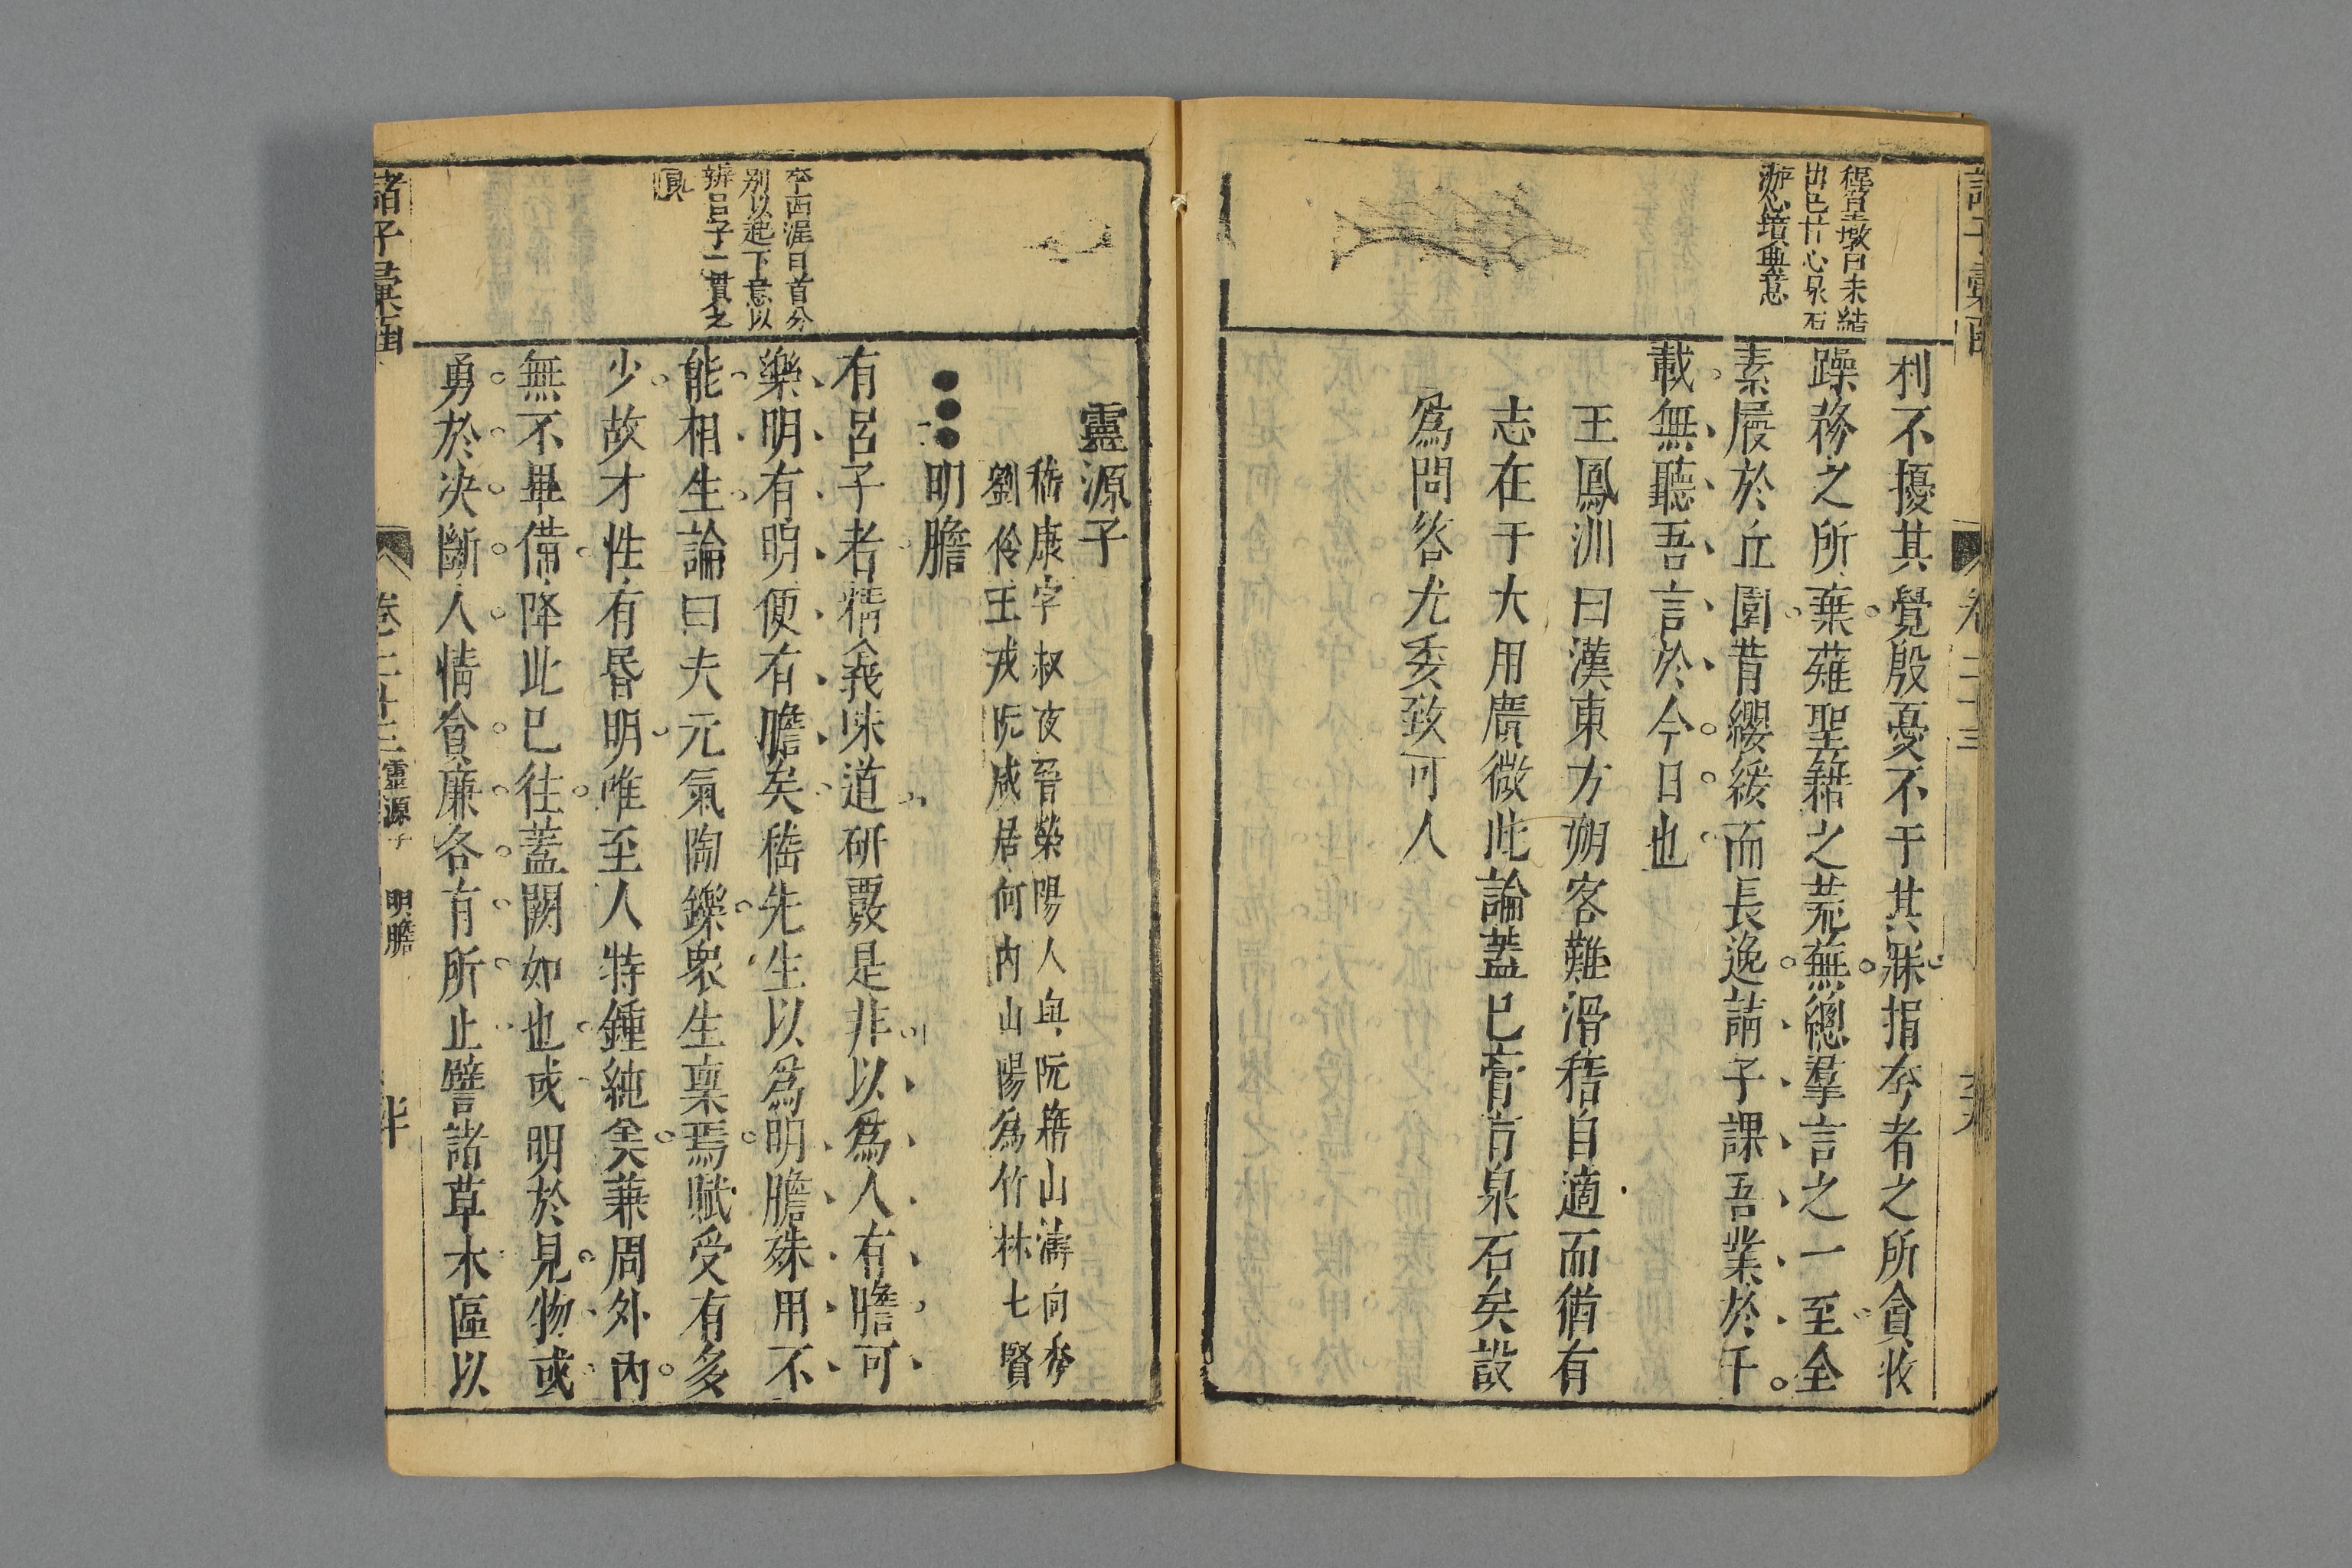 諸子彙函
卷二十三
程篁墩曰未結
出色甘心泉石
游心墳典意
利不擾其覺殷憂不干其寐捐夸者之所貪收
躁務之所棄薙聖籍之荒蕪總羣言之一至全
素履於丘園背纓緌而長逸請子課吾業於千
載無聽吾言於今日也
王鳳洲曰漢東方朔客難滑稽自適而猶有
志在于大用廣微此論蓋已膏肓泉石矣設
爲問答尤委致可人
靈源子
嵇康字叔夜晉榮陽人與阮籍山濤向秀
劉伶王戎阮咸居河內山陽爲竹林七賢
明膽
李西涯曰首分
別以起下意以
辨呂子一貫之
有呂子者精義味道研覈是非以爲人有膽可
樂明有明便有膽矣嵇先生以爲明膽殊用不
能相生論曰夫元氣陶鑠衆生稟焉賦受有多
少故才性有昏明唯至人特鍾純美兼周外內
無不畢備降此已往蓋闕如也或明於見物或
勇於決斷人情貪廉各有所止譬諸草木區以
諸子彙函
卷二十三 靈源子 明膽